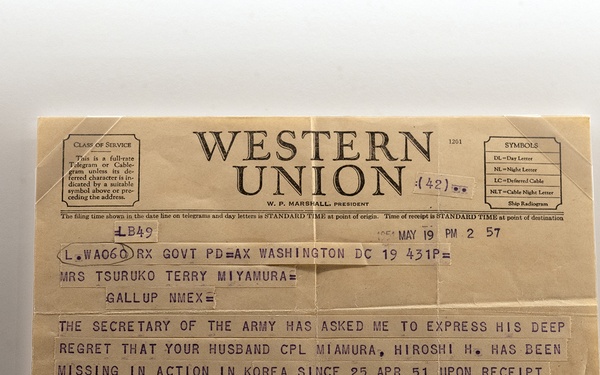 CLASS OF SERVICE
This is a full-rate
Telegram or Cable-
gram unless its de-
ferred character is in-
dicated by a suitable
symbol above or pre-
ceding the address.
WESTERN
UNION
W. P. MARSHALL, PRESIDENT
1201
(42)
SYMBOLS
DL=Day Letter
NL=Night Letter
LC=Deferred Cable
NLT=Cable Night Letter
Ship Radiogram
The filing time shown in the date line on telegrams and day letters is STANDARD TIME at point of origin. Time of receipt is STANDARD TIME at point of destination
LB49
1951 MAY 19 PM 2 57
L.WA060 RX GOVT PD=AX WASHINGTON DC 19 431P=
MRS TSURUKO TERRY MIYAMURA=
GALLUP NMEX=
THE SECRETARY OF THE ARMY HAS ASKED ME TO EXPRESS HIS DEEP
REGRET THAT YOUR HUSBAND CPL MIAMURA, HIROSHI H. HAS BEEN
MISSING IN ACTION IN KOREA SINCE 25 APR 51 UPON RECEIPT